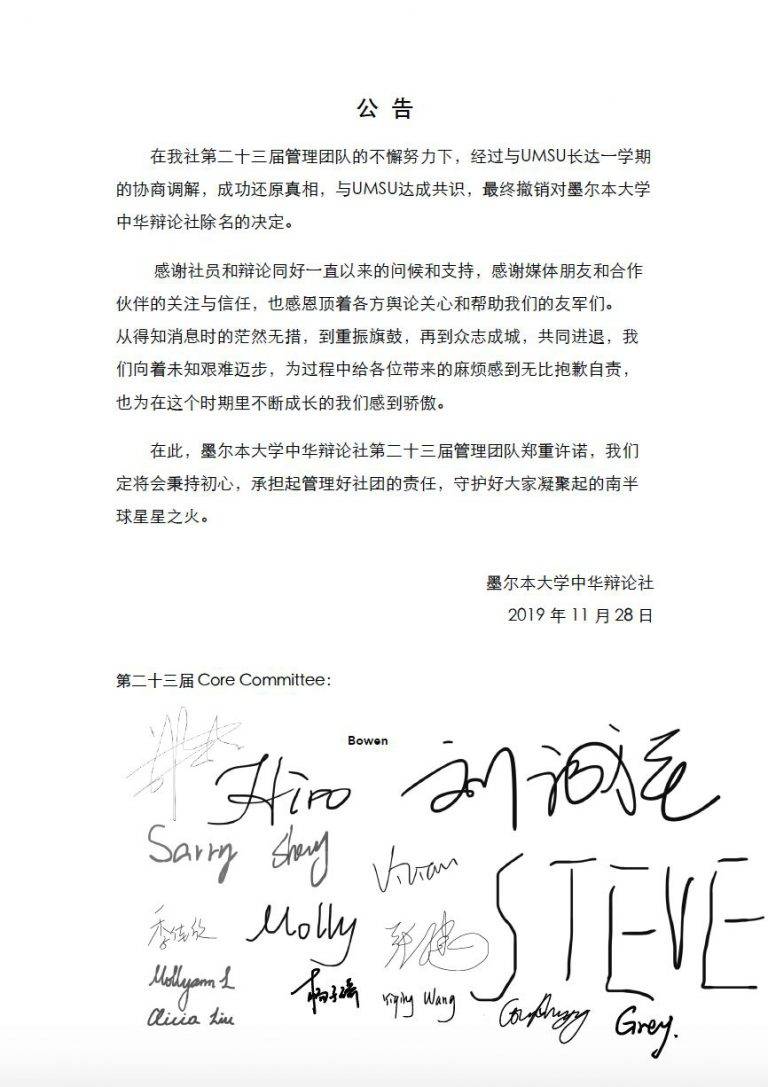 公 告
在我社第二十三届管理团队的不懈努力下，经过与UMSU长达一学期
的协商调解，成功还原真相，与UMSU达成共识，最终撤销对墨尔本大学
中华辩论社除名的决定。
感谢社员和辩论同好一直以来的问候和支持，感谢媒体朋友和合作
伙伴的关注与信任，也感恩顶着各方舆论关心和帮助我们的友军们。
从得知消息时的茫然无措，到重振旗鼓，再到众志成城，共同进退，我
们向着未知艰难迈步，为过程中给各位带来的麻烦感到无比抱歉自责，
也为在这个时期里不断成长的我们感到骄傲。
在此，墨尔本大学中华辩论社第二十三届管理团队郑重许诺，我们
定将会秉持初心，承担起管理好社团的责任，守护好大家凝聚起的南半
球星星之火。
墨尔本大学中华辩论社
2019 年 11 月 28 日
第二十三届 Core Committee：
Bowen
Hiro
Sarry
Vivian
STEVE
季佳欣 Molly
Mollyann L
Yiqing Wang
Alicia Liu
Grey.